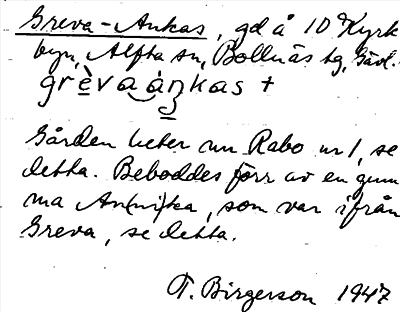 Greva-Ankas, gd å 10 Kyrk
byn, Alfta sn, Bollnäs tg, Gävl.
grèvaáŋkas +
Gården heter nu Rabo nr 1, se
detta. Beboddes förr av en gum
ma An(ni)ka, som var ifrån
Greva, se detta.
T. Birgerson 1947